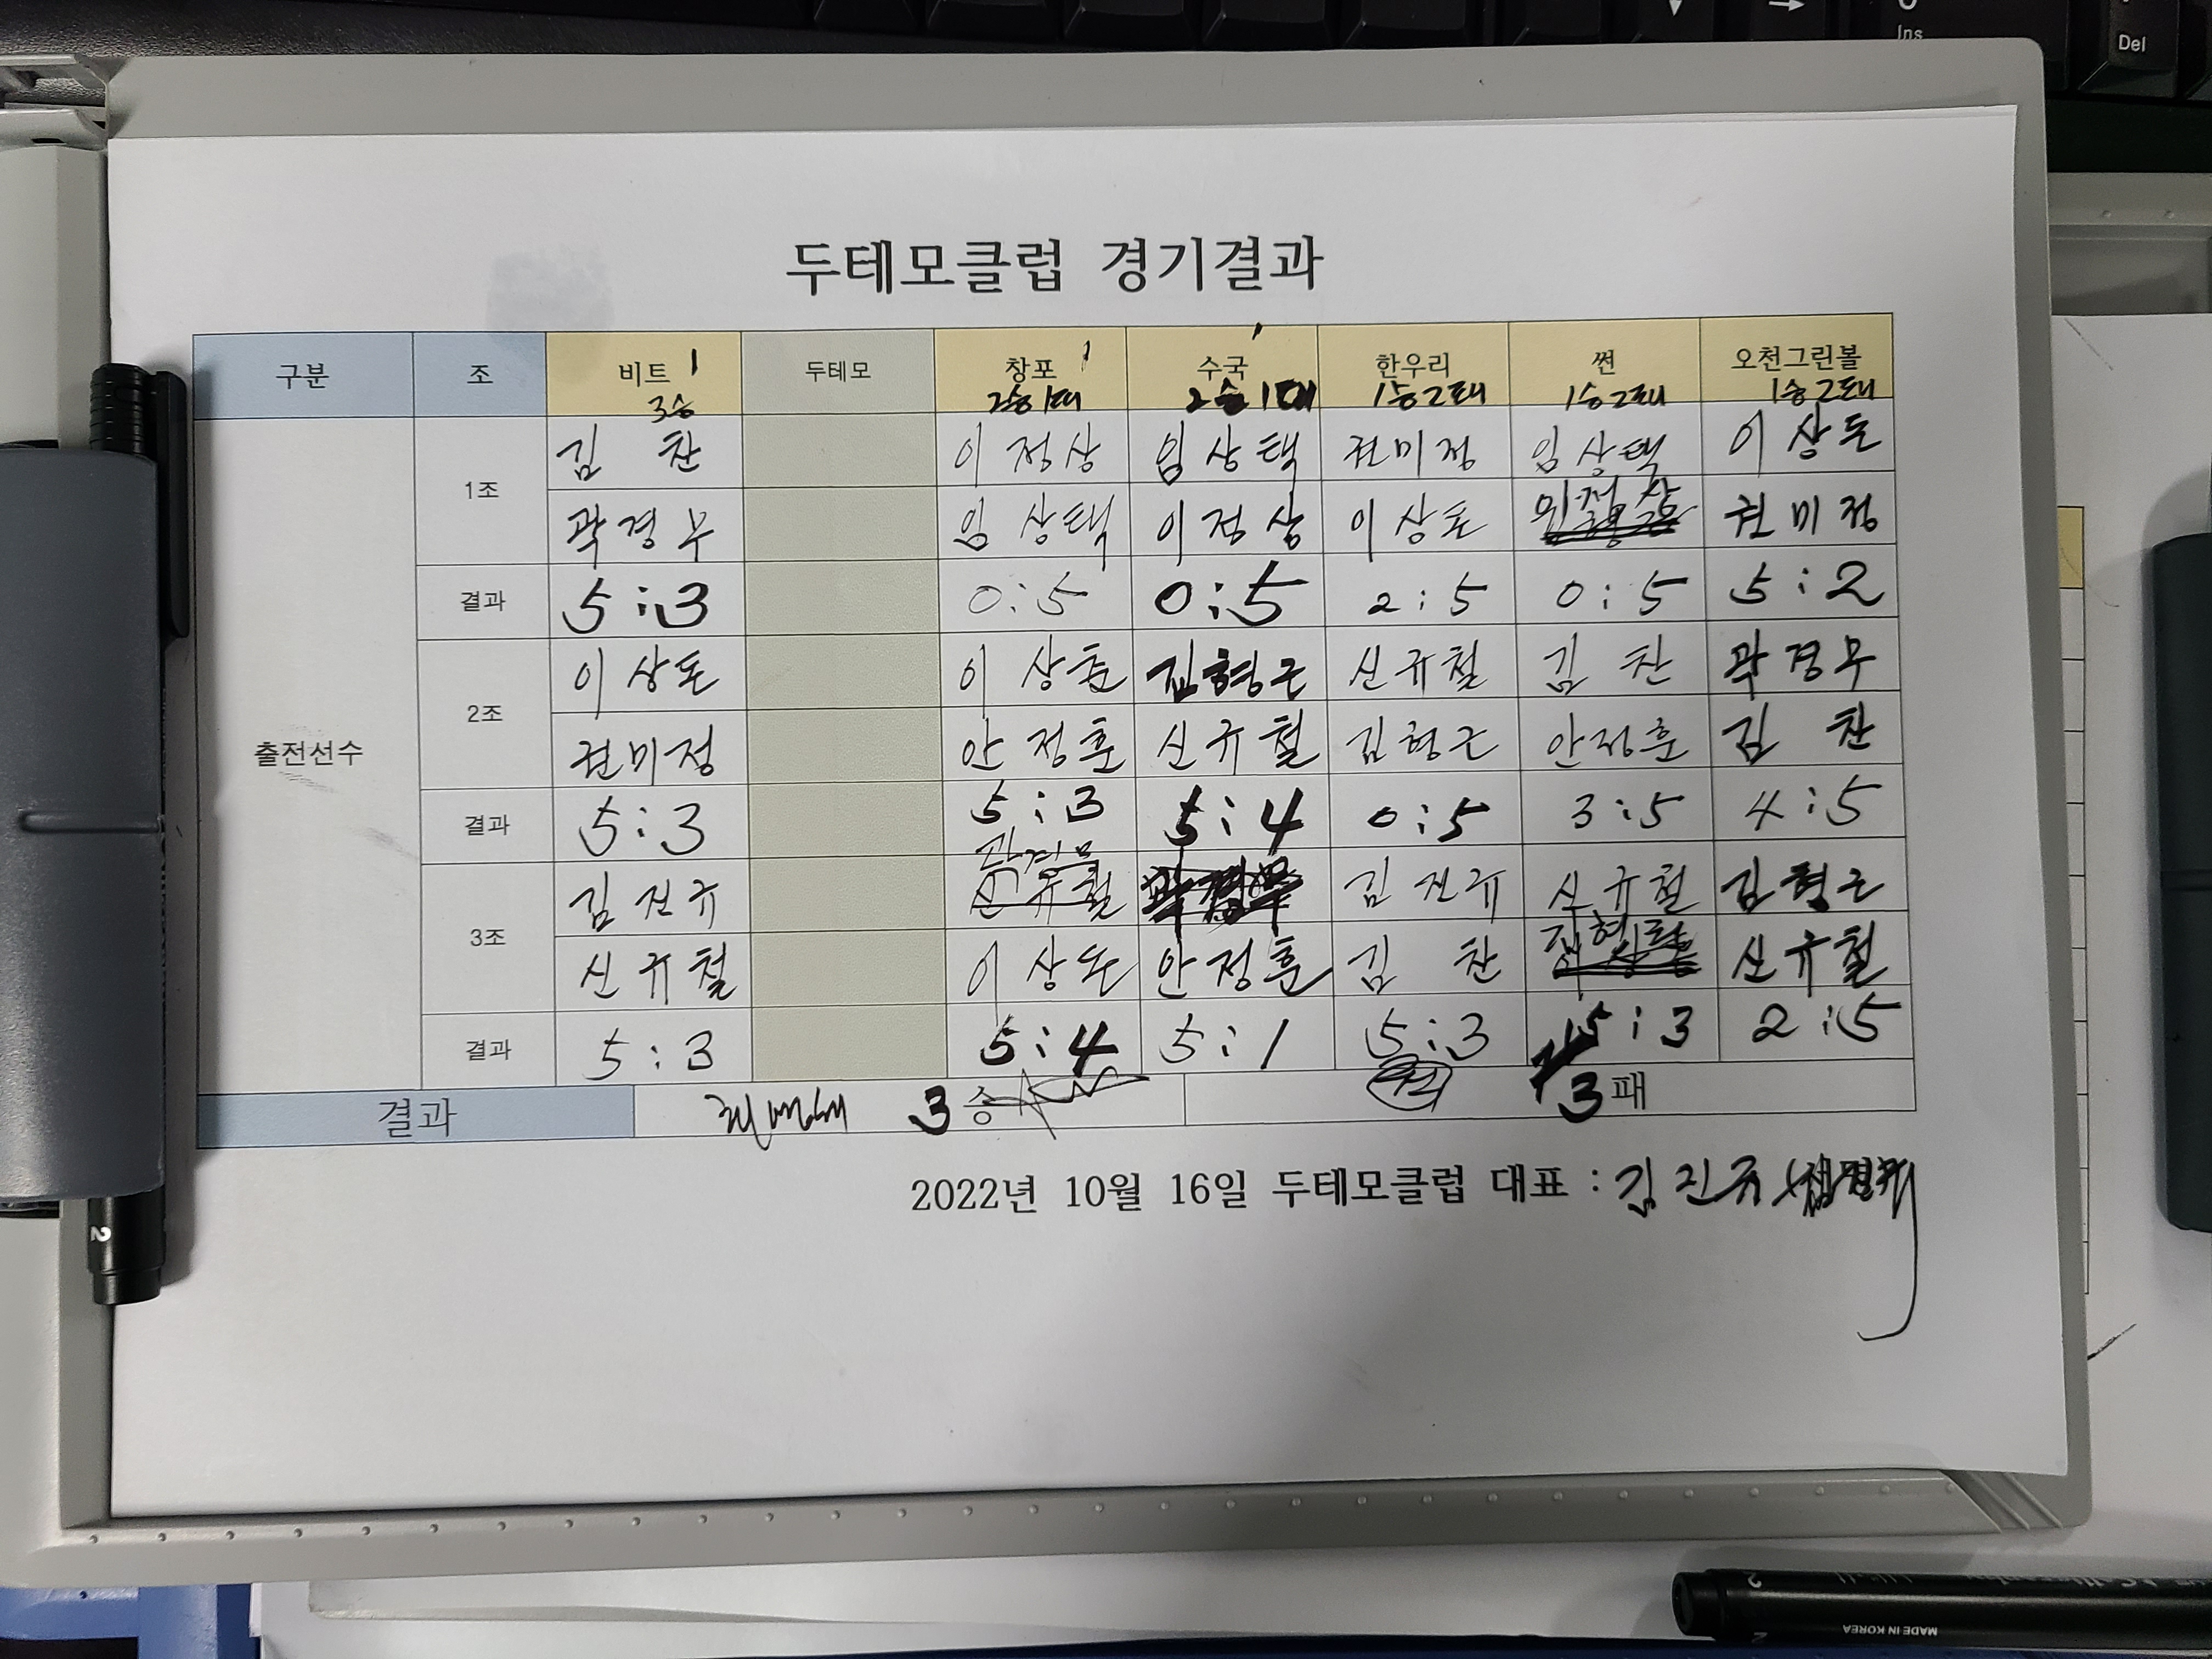 Ins
Del
두테모클럽 경기결과
구분 조 비트 1 두테모 창포 1 수국 1 한우리 썬 오천그린볼
3승 2승1패 2승1패 1승2패 1승2패 1승2패
출전선수
1조
김 찬 이정상 임상택 권미정 임상택 이상돈
곽경무 임상택 이정상 이상돈 권미정
결과 5:3 0:5 0:5 2:5 0:5 5:2
2조
이상돈 이상훈 김형근 신규철 김 찬 곽경무
권미정 안정훈 신규철 김형근 안정훈 김 찬
결과 5:3 5:3 5:4 0:5 3:5 4:5
3조
김진규 곽경무 김진규 신규철 김형근
신규철 이상돈 안정훈 김 찬 신규철
결과 5:3 5:4 5:1 5:3 5:3 2:5
결과 3승 3패
2022년 10월 16일 두테모클럽 대표 : 김진규
2
2
MADE IN KOREA
2